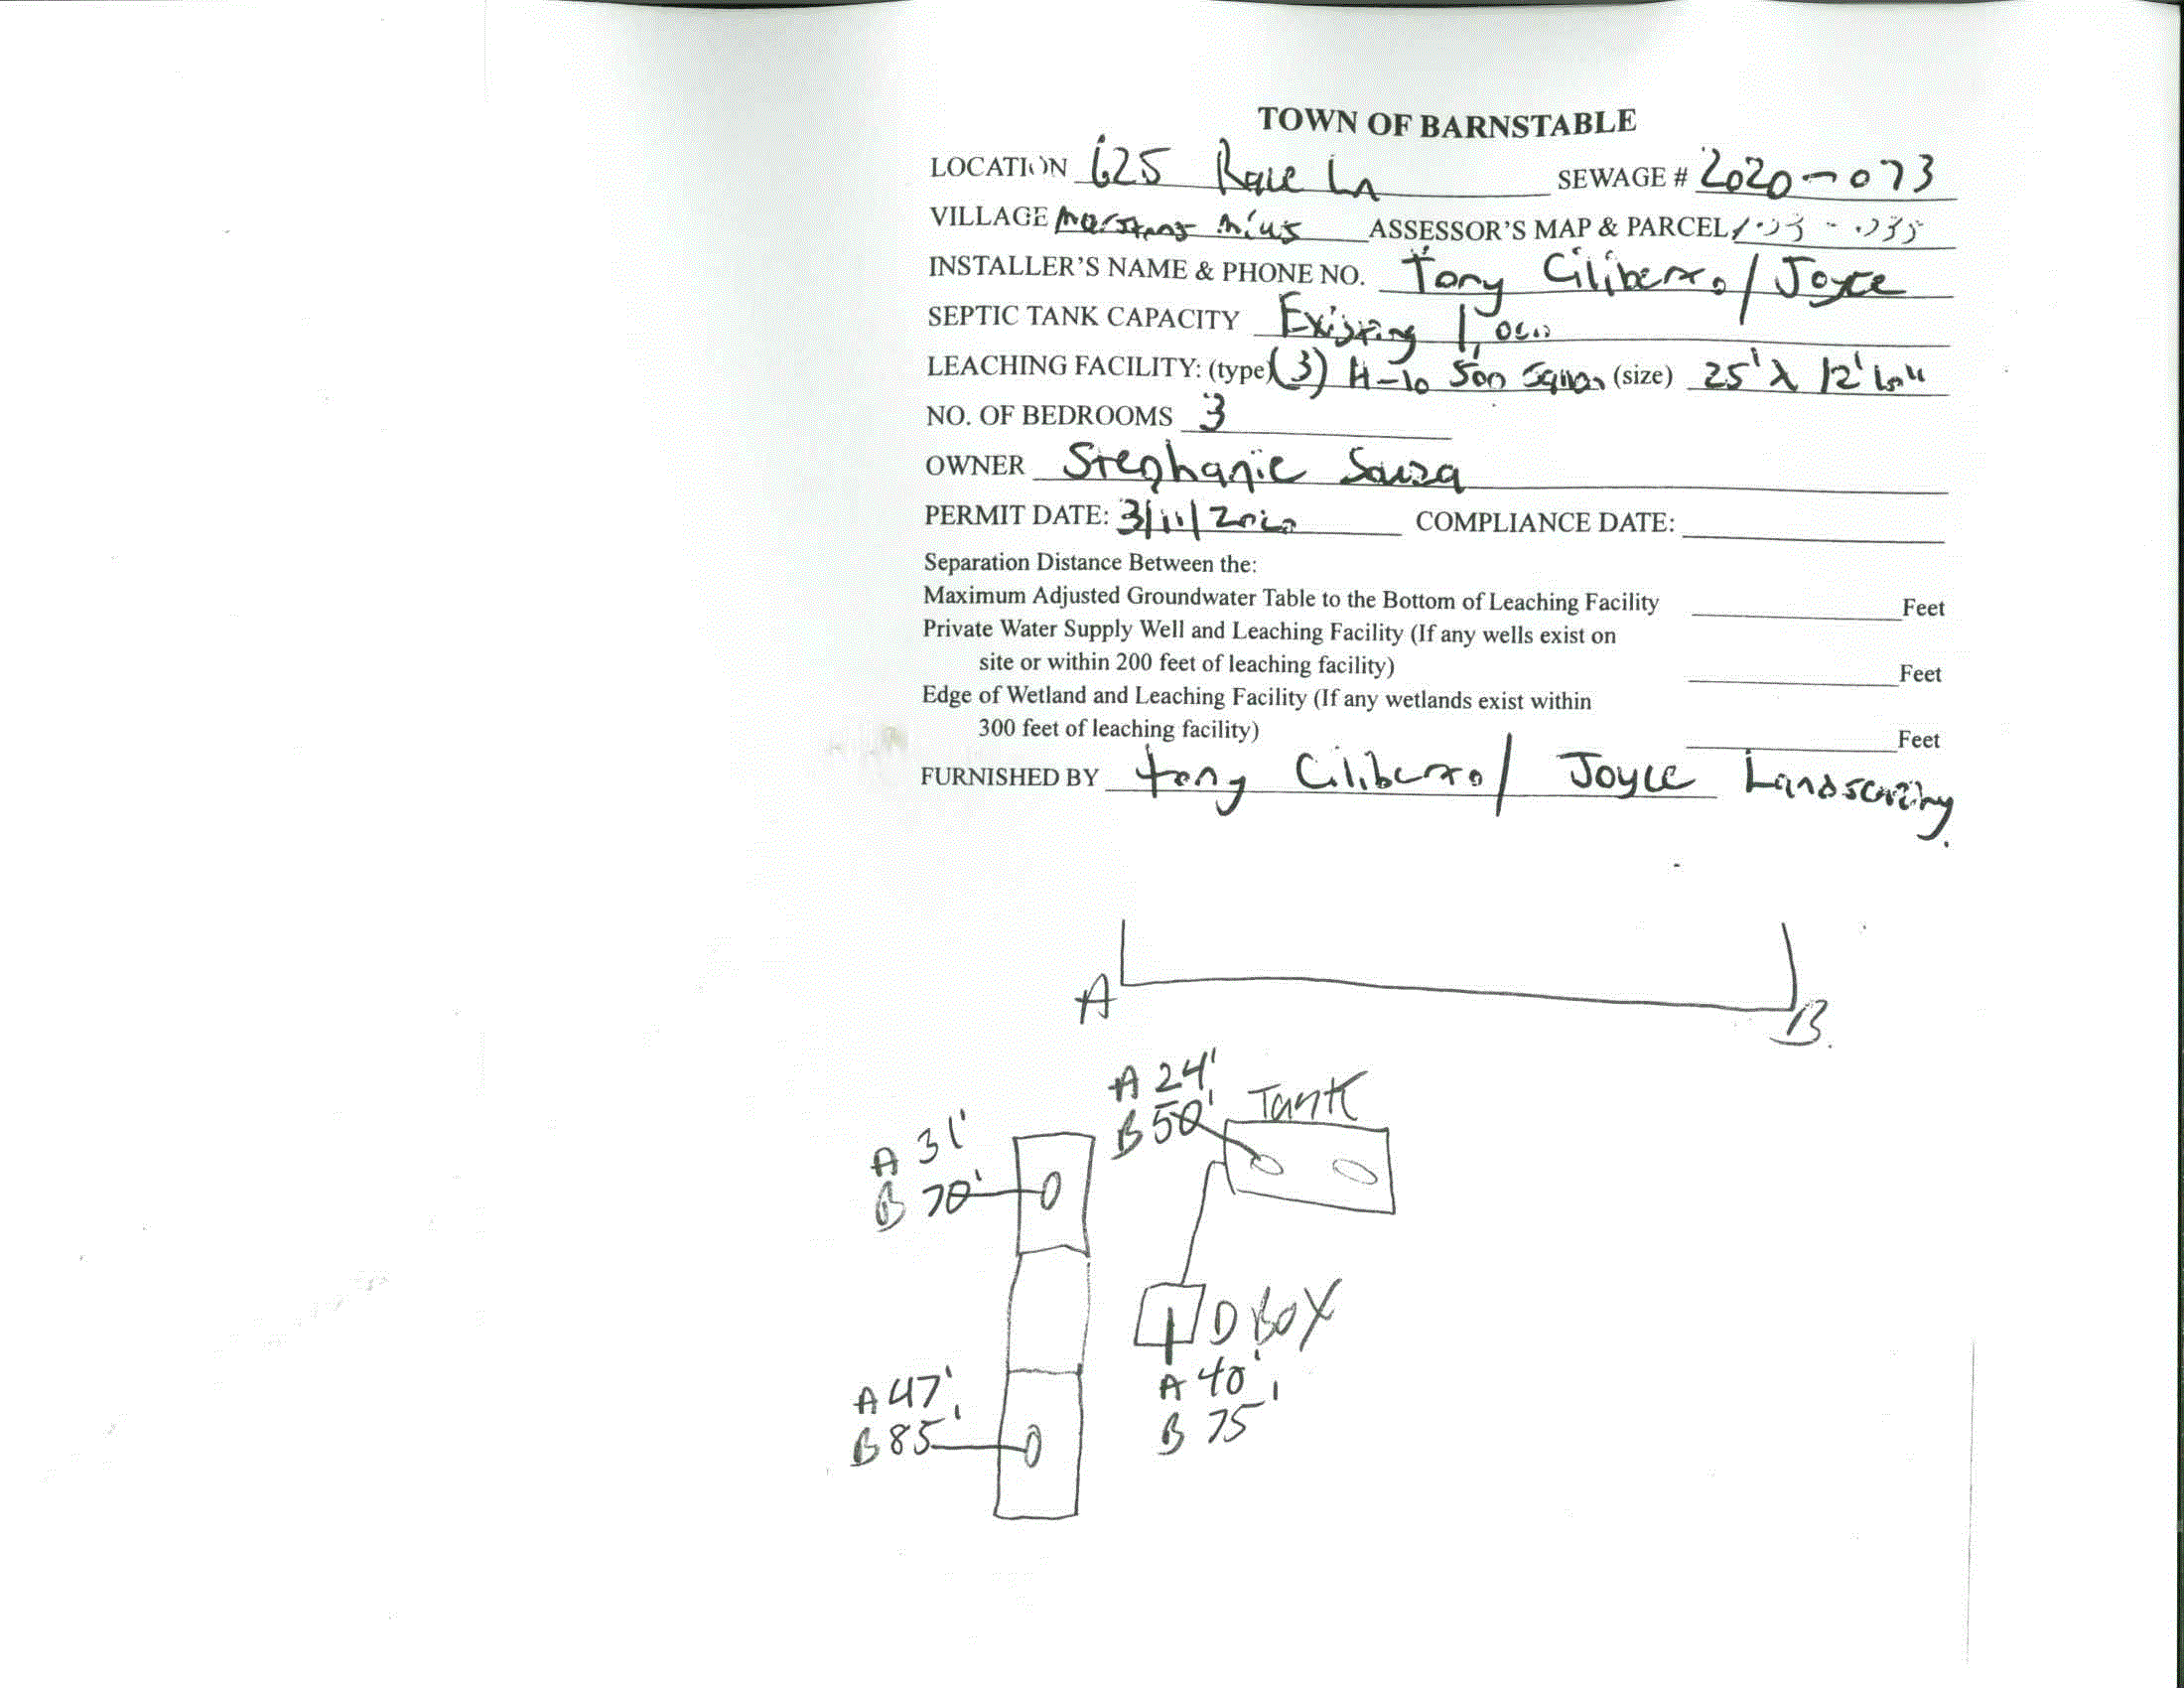 TOWN OF BARNSTABLE
LOCATION 625 Race Ln SEWAGE # 2020-073
VILLAGE Marstons Mills ASSESSOR'S MAP & PARCEL
INSTALLER'S NAME & PHONE NO. Tony Ciliberto / Joyce
SEPTIC TANK CAPACITY Existing 1,000
LEACHING FACILITY: (type) (3) H-10 500 (size) 25' x 12'
NO. OF BEDROOMS 3
OWNER Stephanie Souza
PERMIT DATE: 3/11/2020 COMPLIANCE DATE:
Separation Distance Between the:
Maximum Adjusted Groundwater Table to the Bottom of Leaching Facility Feet
Private Water Supply Well and Leaching Facility (If any wells exist on
site or within 200 feet of leaching facility) Feet
Edge of Wetland and Leaching Facility (If any wetlands exist within
300 feet of leaching facility) Feet
FURNISHED BY Tony Ciliberto / Joyce Landscaping
A
B
A 24'
B 50'
Tank
A 31'
B 70'
D BOX
A 40'
B 75'
A 47'
B 85'